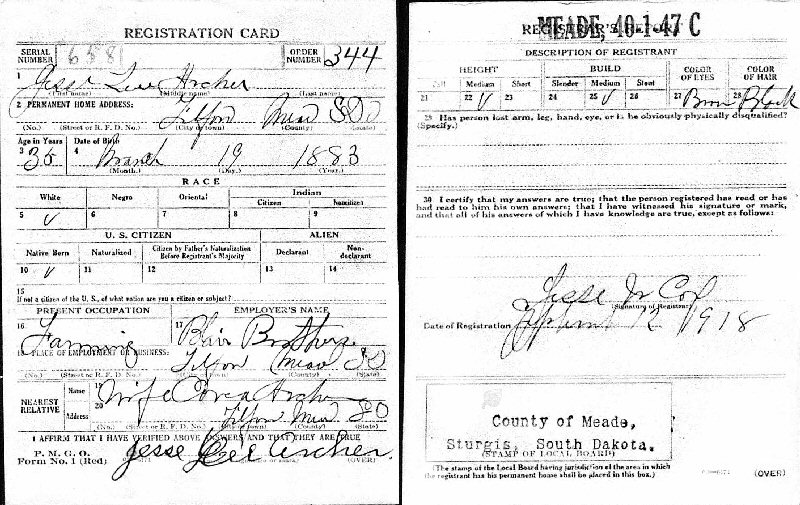 REGISTRATION CARD
SERIAL NUMBER 658 ORDER NUMBER 344
1 Jesse Lee Archer
(First name) (Middle name) (Last name)
2 PERMANENT HOME ADDRESS:
Tilford Mead SD
(No.) (Street or R. F. D. No.) (City or town) (County) (State)
Age in Years Date of Birth
3 35 4 March 19 1883
(Month.) (Day.) (Year.)
RACE
White Negro Oriental Indian
Citizen Noncitizen
5 V 6 7 8 9
U. S. CITIZEN ALIEN
Native Born Naturalized Citizen by Father's Naturalization Before Registrant's Majority Declarant Non-declarant
10 V 11 12 13 14
15
If not a citizen of the U. S., of what nation are you a citizen or subject?
PRESENT OCCUPATION EMPLOYER'S NAME
16 Farming 17 Blair Brothers
18 PLACE OF EMPLOYMENT OR BUSINESS:
Tilford Mead SD
(No.) (Street or R. F. D. No.) (City or town) (County) (State)
NEAREST RELATIVE
Name 19 Wife Archer
Address 20 Tilford Mead SD
(No.) (Street or R. F. D. No.) (City or town) (County) (State)
I AFFIRM THAT I HAVE VERIFIED ABOVE ANSWERS AND THAT THEY ARE TRUE
P. M. G. O.
Form No. 1 (Red) Jesse Lee Archer (OVER)
REGISTRAR'S REPORT
MEADE, 40-1-47 C
DESCRIPTION OF REGISTRANT
HEIGHT BUILD COLOR OF EYES COLOR OF HAIR
Tall Medium Short Slender Medium Stout
21 22 V 23 24 25 V 26 27 Brown 28 Black
29 Has person lost arm, leg, hand, eye, or is he obviously physically disqualified?
(Specify.)
30 I certify that my answers are true; that the person registered has read or has
had read to him his own answers; that I have witnessed his signature or mark,
and that all of his answers of which I have knowledge are true, except as follows:
(Signature of Registrar)
Date of Registration September 12 1918
County of Meade,
Sturgis, South Dakota.
(STAMP OF LOCAL BOARD)
(The stamp of the Local Board having jurisdiction of the area in which
the registrant has his permanent home shall be placed in this box.)
(OVER)